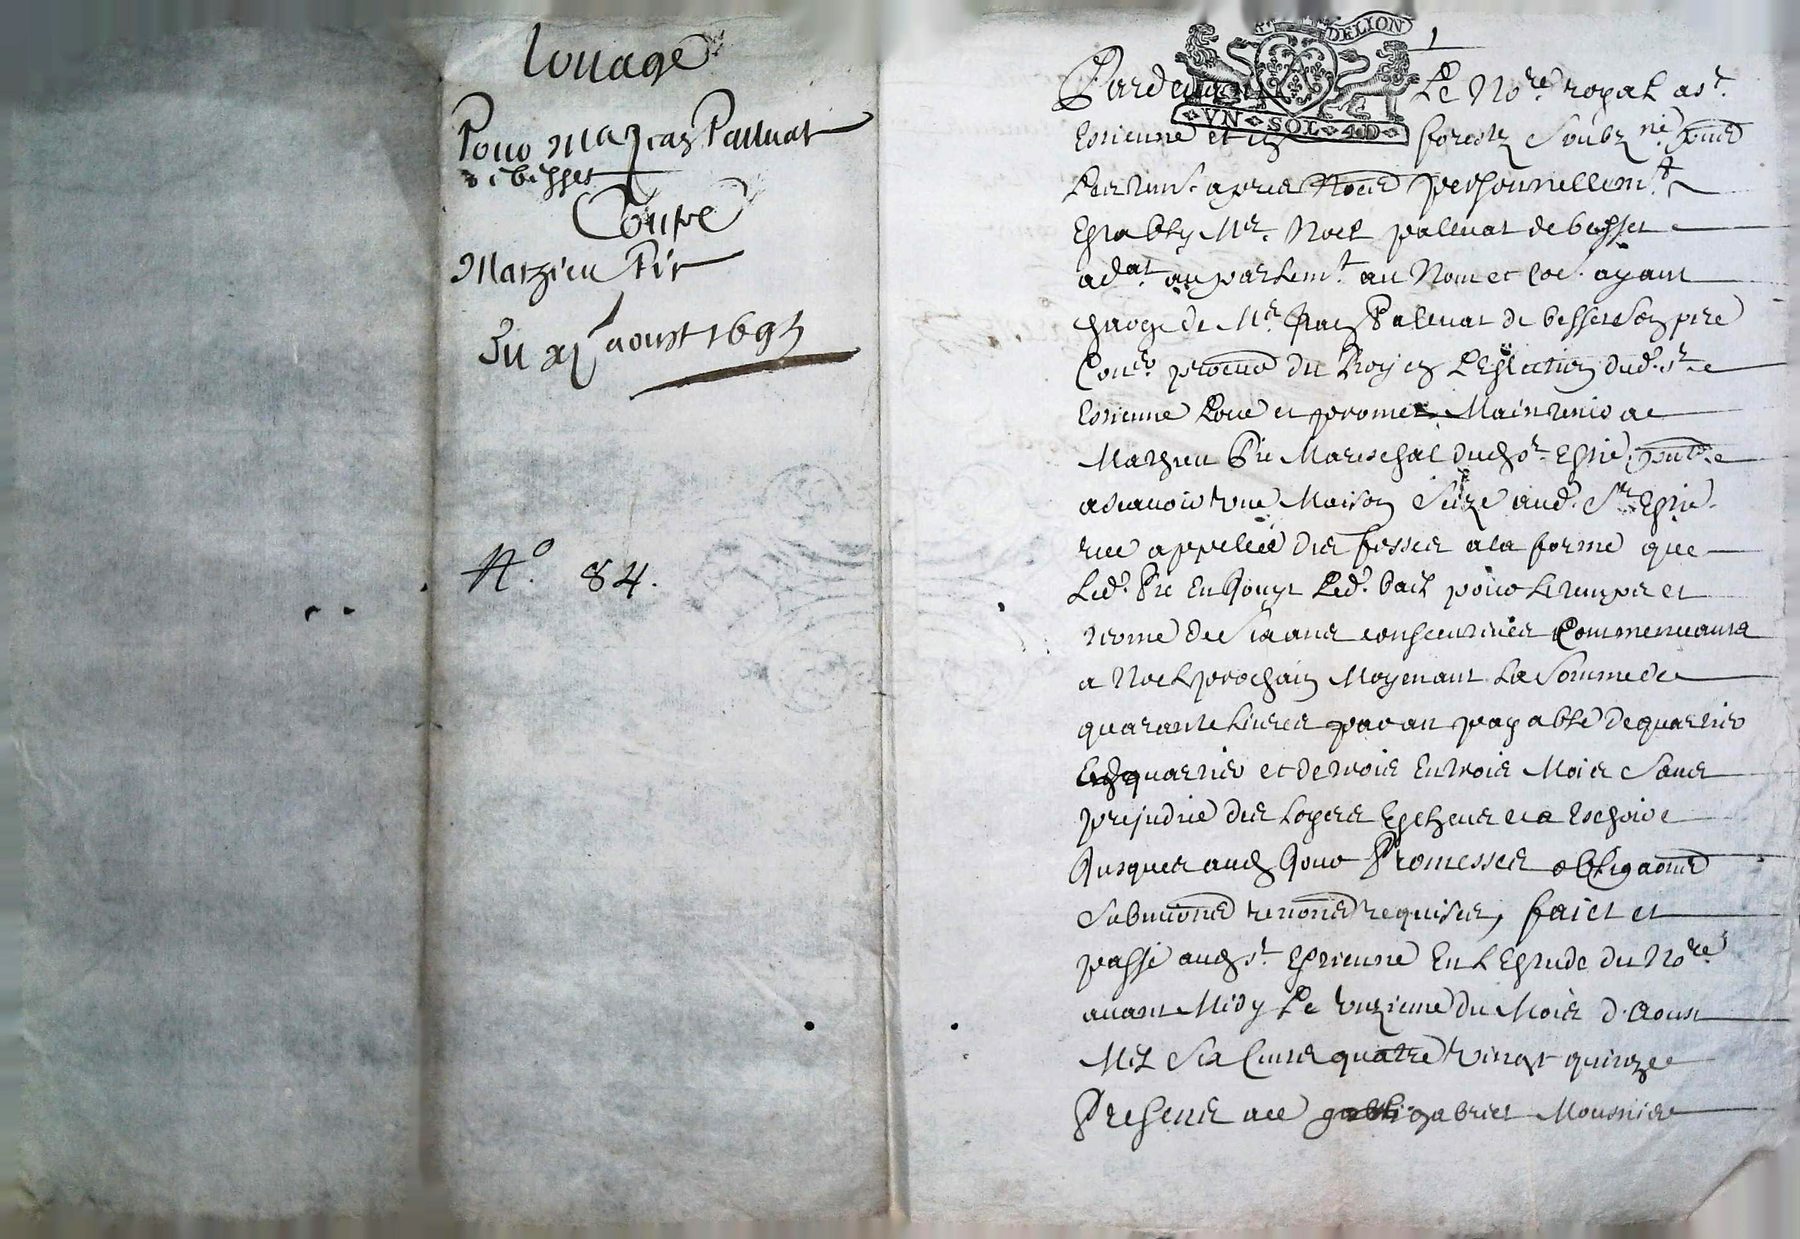 Louage
Pour Me Jean Palluat
de besset
Contre
Mathieu Pir
Du xi aoust 1695
N.o 84.
DE LION
VN · SOL · 4D
Pardevant Le No.re royal a S.t
Estienne et en forestz Soubz.né
Les tesm. apres només personnellem.t
Estably M.e Noel paluat de besset
ad.at au parlem.t au Nom et co.e ayant
charge de M.r Jean Paluat de besset Son pere
Con.er procur du Roy en L'Eslection dud. S.t
Estienne Loue et promet Maintenir a
Mathieu Pir Mareschal dud S.t Estie.
ascavoir une Maison Size aud. S.t Estie.
rue appellée des fosses a la forme que
Led. Pir En Jouyt Led. bail pour Le temps et
terme de Six ans consecutives Commenceants
a Noel prochain Moyenant La Somme de
quarante Livres par an payable de quartier
En quartier et de trois En trois Mois Sans
prejudice des Loyers Escheus et a Eschoir
Jusques aud Jour Promesses obligaons
Submons renons requises, faict et
passé aud S.t Estienne En L'Estude du No.re
avant Midy Le unzieme du Mois d'Aoust
Mil Six Cents quatre vingt quinze
Presents a ce gabriel Mousnier